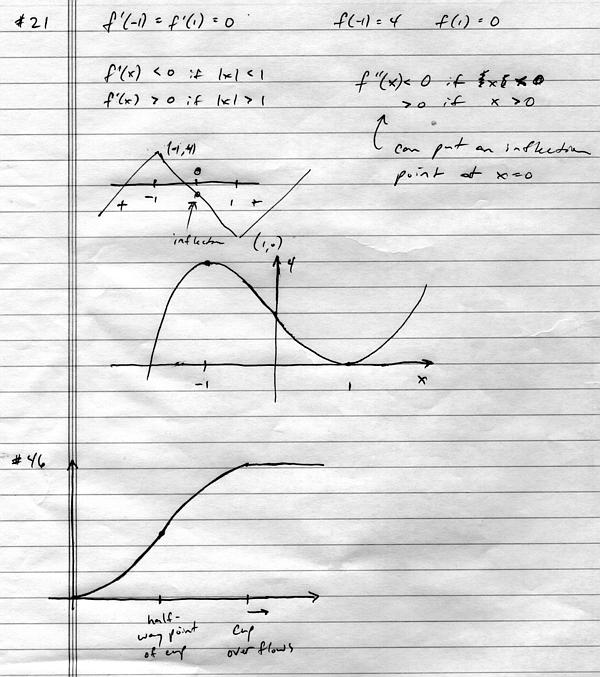 #21 f'(-1) = f'(1) = 0 f(-1) = 4 f(1) = 0
f'(x) < 0 if |x| < 1
f'(x) > 0 if |x| > 1
f''(x) < 0 if x < 0
> 0 if x > 0
can put an inflection
point at x=0
(-1,4)
0
+ -1 - 1 +
inflection
(1,0)
4
-1 1 x
#46
half-
way point
of cup
cup
overflows